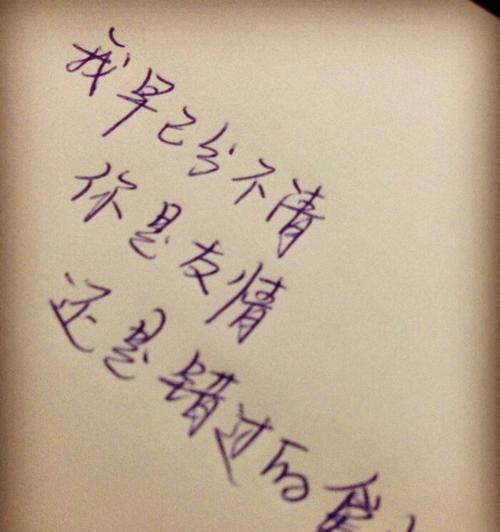 我早已分不清
你是友情
还是错过的